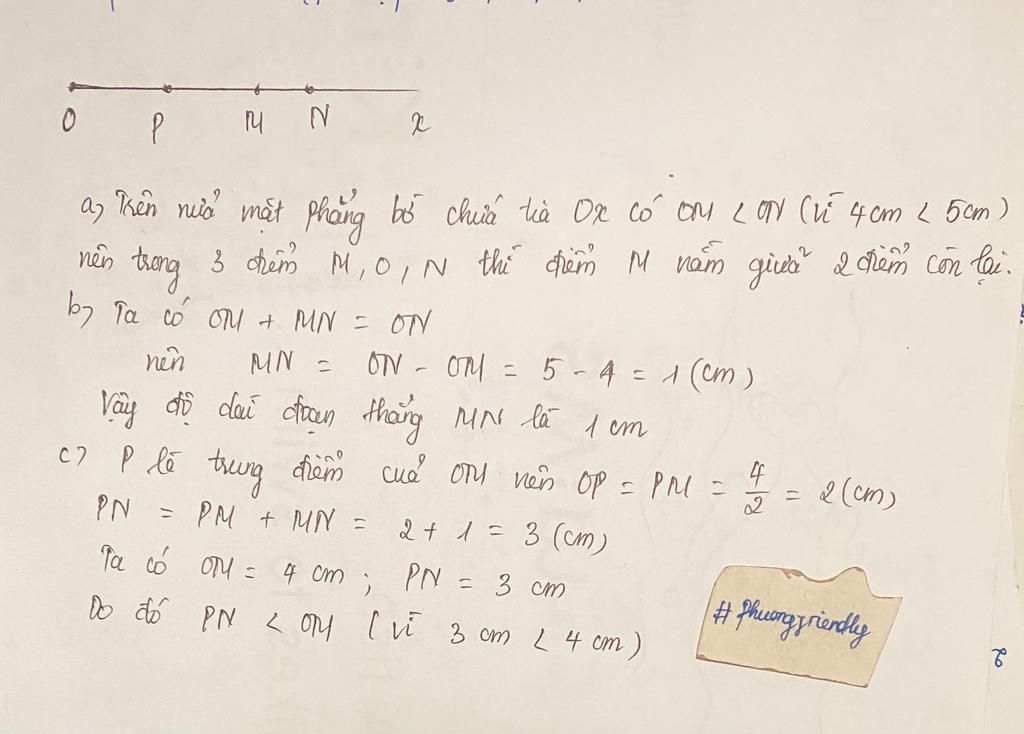 O P M N x
a, Trên nửa mặt phẳng bờ chứa tia Ox có OM < ON (vì 4cm < 5cm)
nên trong 3 điểm M, O, N thì điểm M nằm giữa 2 điểm còn lại.
b, Ta có OM + MN = ON
nên MN = ON - OM = 5 - 4 = 1 (cm)
Vậy độ dài đoạn thẳng MN là 1 cm
c, P là trung điểm của OM nên OP = PM = 4/2 = 2 (cm)
PN = PM + MN = 2 + 1 = 3 (cm)
Ta có OM = 4 cm ; PN = 3 cm
Do đó PN < OM (vì 3 cm < 4 cm)
# phuongfriendly